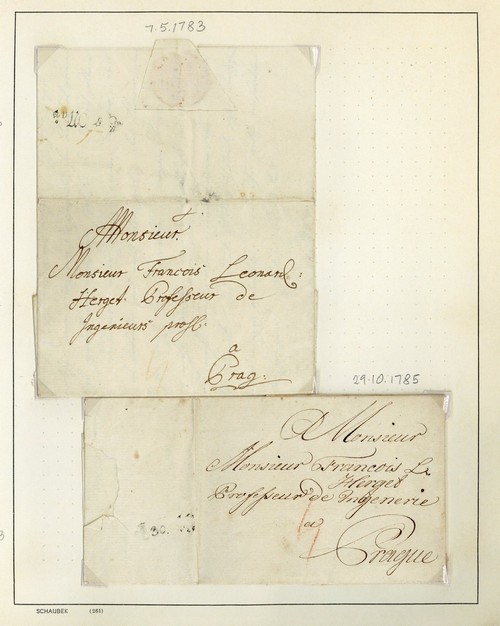 7.5.1783
Monsieur.
Monsieur Francois Leonard:
Herget. Professeur de
Ingenieurs
a
Prag.
29.10.1785
A Monsieur
Monsieur Francois L.
Herget
Professeur de Ingenerie
a
Prague
30.
SCHAUBEK (261)